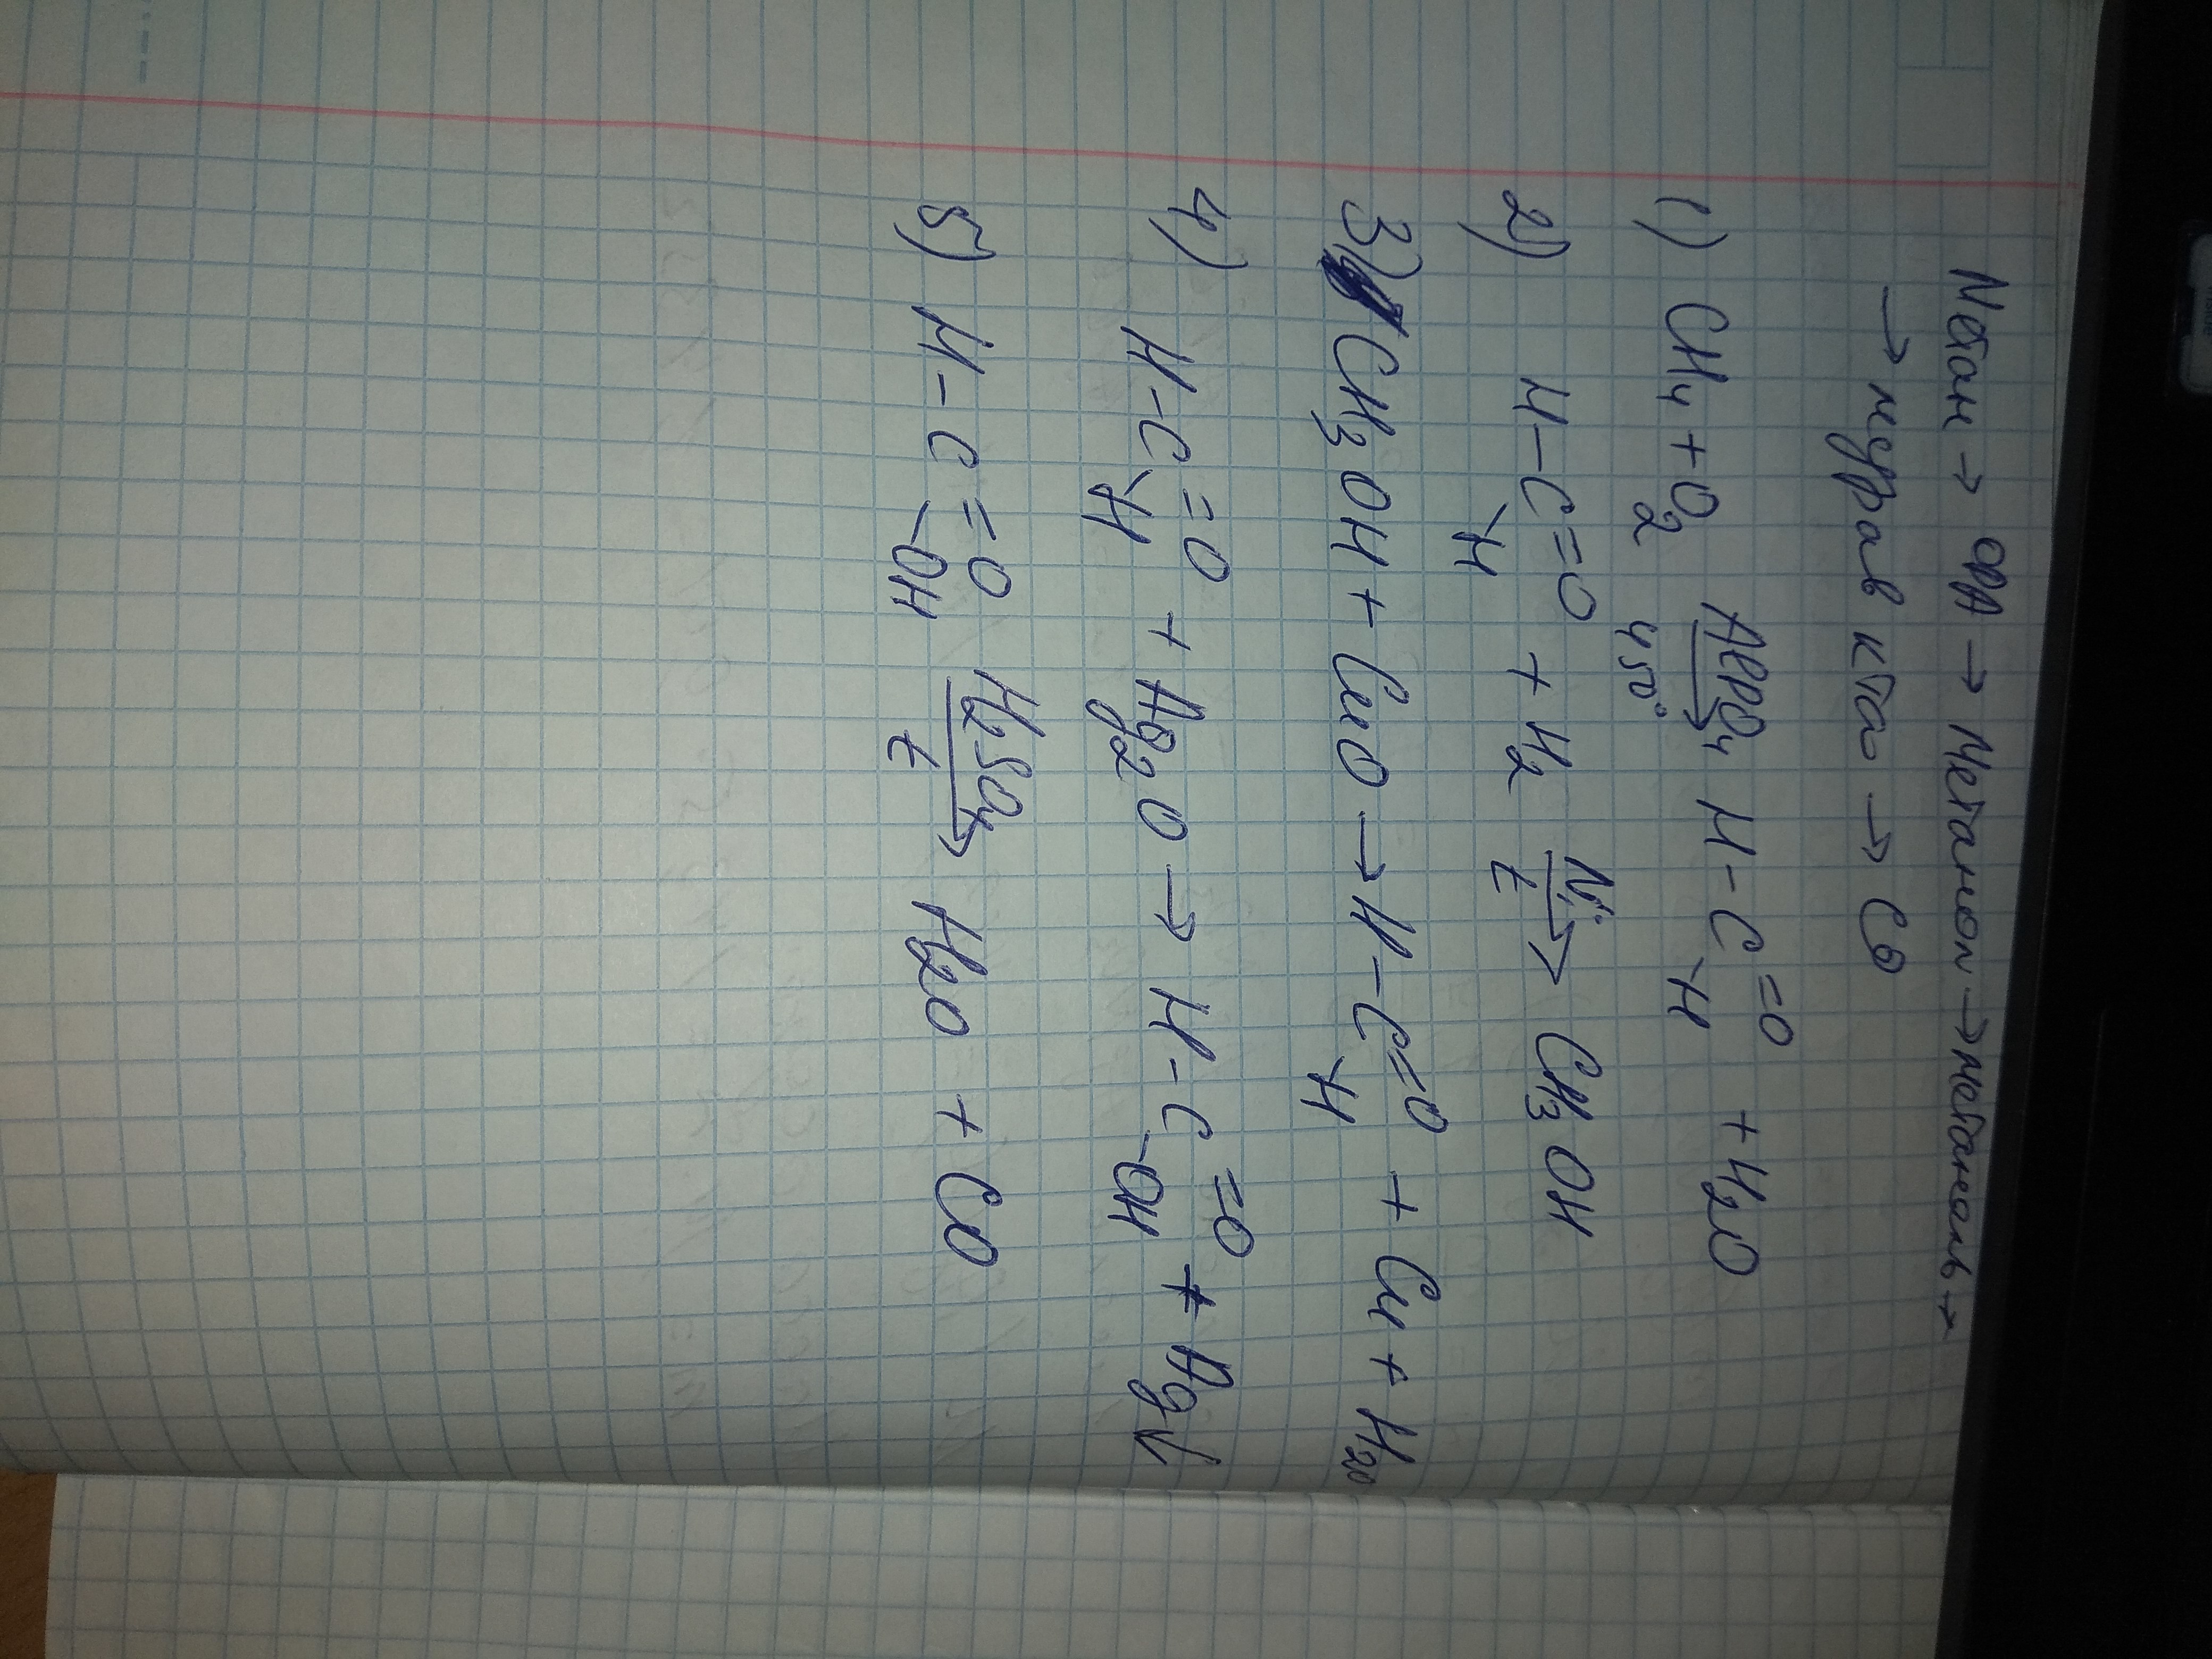 Метан → ФА → Метанол → метаналь →
→ мурав к-та → CO
1) CH₄ + O₂ AlPO₄→ 450° H-C=O -H + H₂O
2) H-C=O -H + H₂ Ni→ t CH₃OH
3) CH₃OH + CuO → H-C=O -H + Cu + H₂O
4) H-C=O -H + Ag₂O → H-C=O -OH + Ag↓
5) H-C=O -OH H₂SO₄→ t H₂O + CO